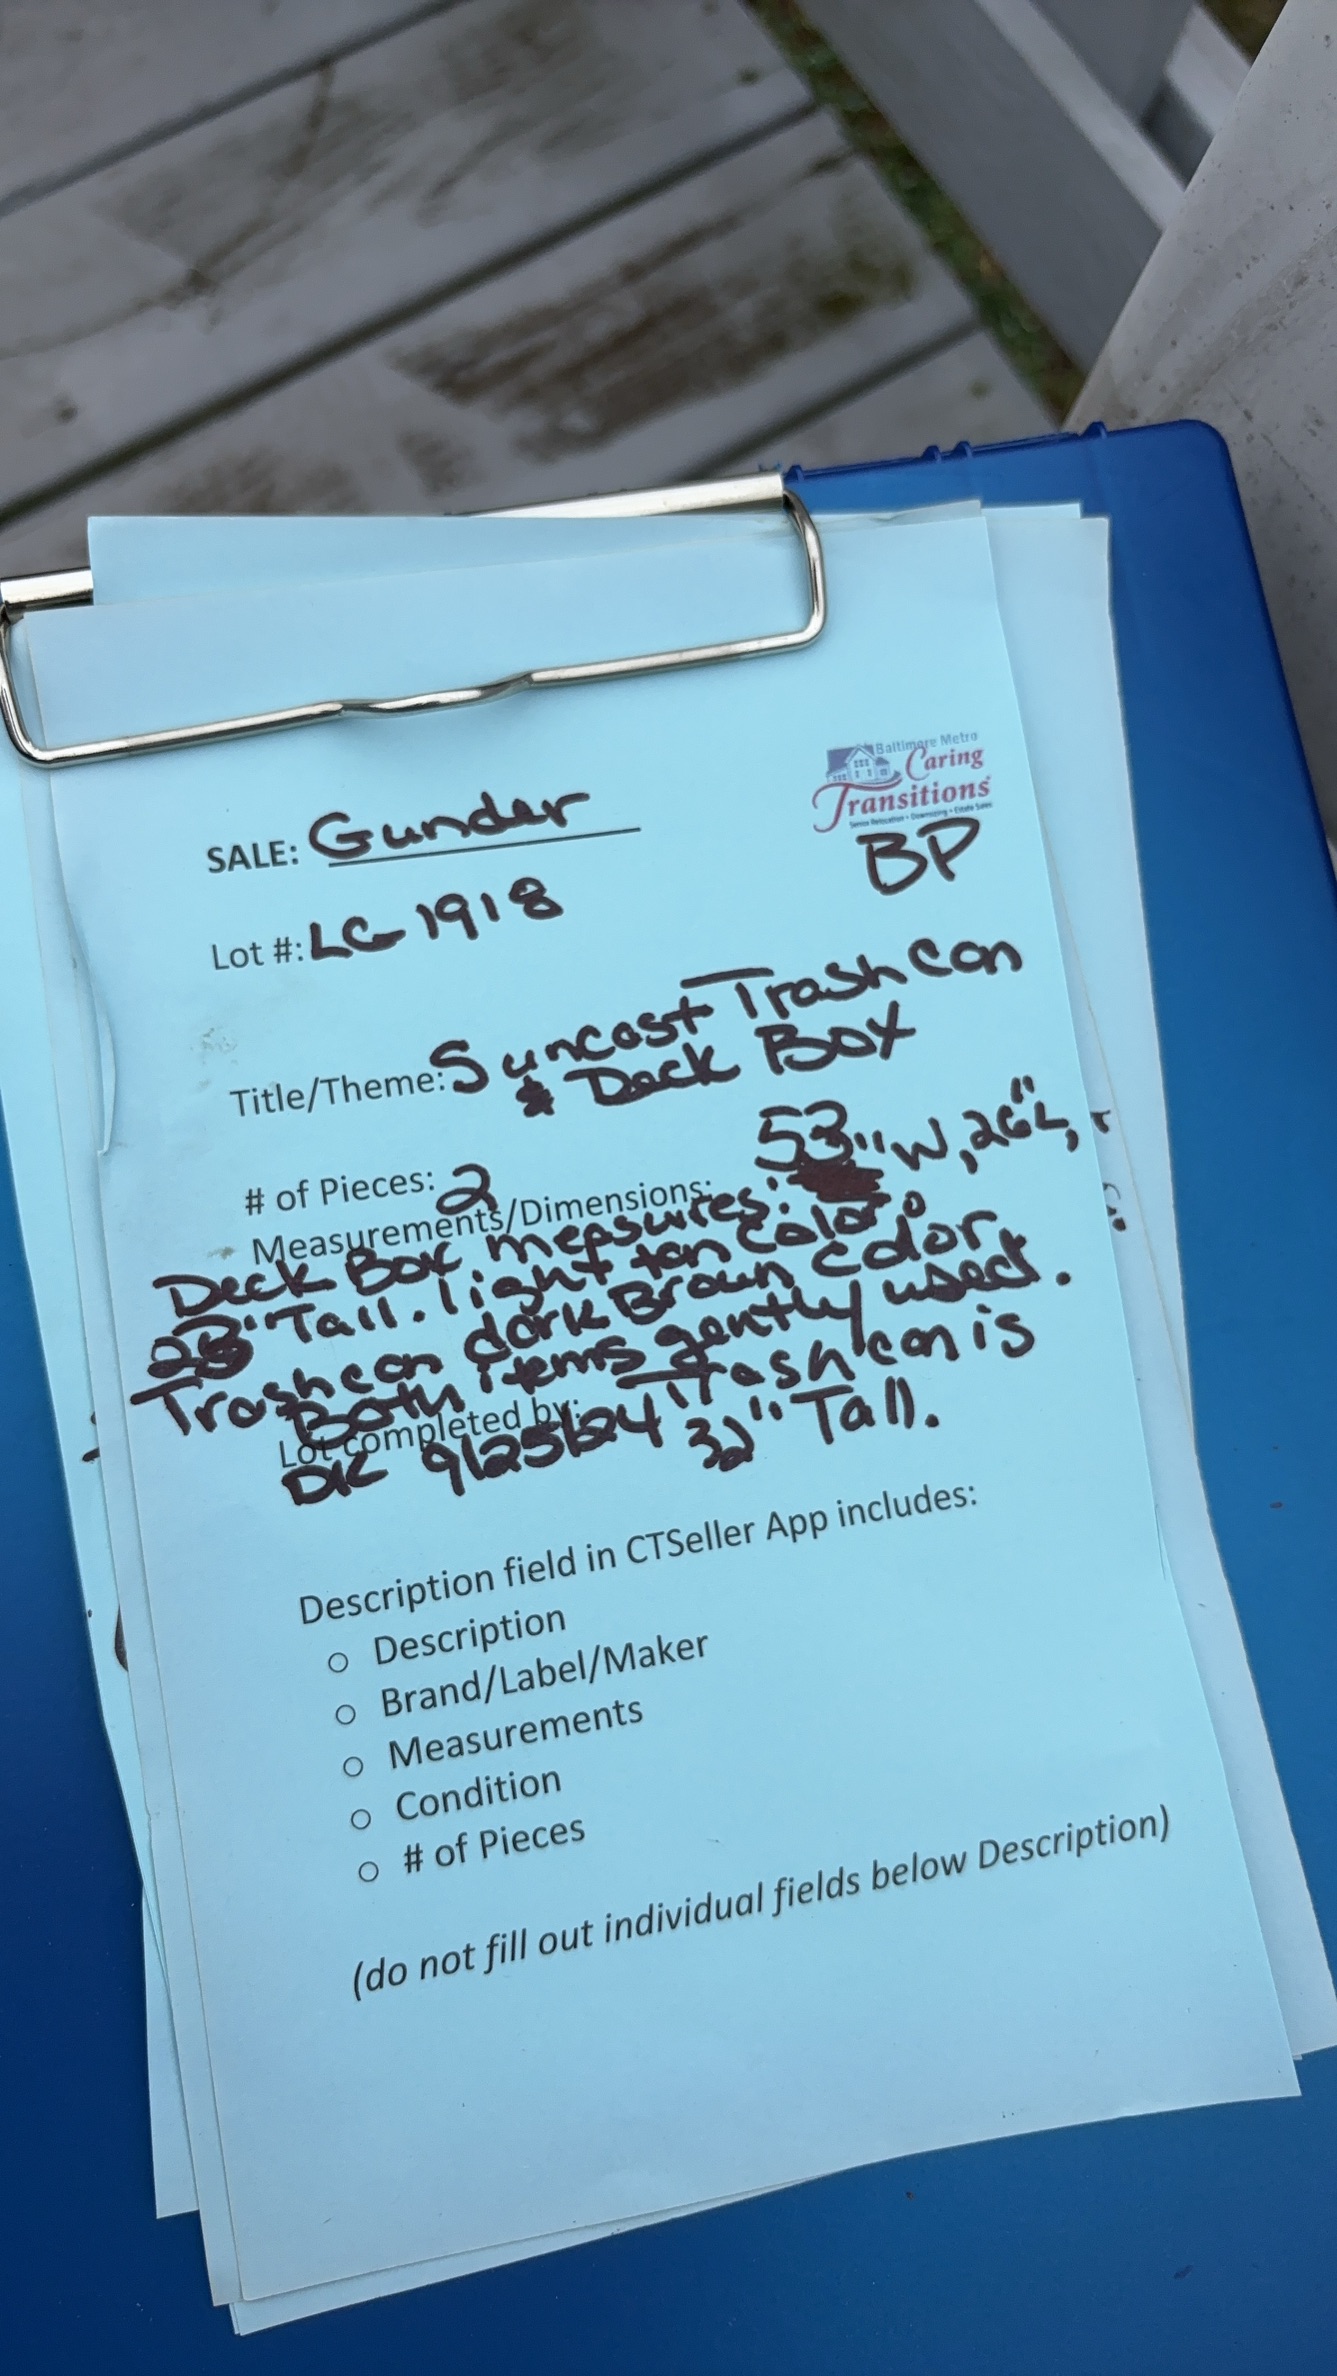 Baltimore Metro
Caring
Transitions
Senior Relocation • Downsizing • Estate Sales
SALE: Gunder
BP
Lot #: LG 1918
Title/Theme: Suncast Trash Can
& Deck Box
# of Pieces: 2
Measurements/Dimensions:
53"W, 26"L,
Deck Box measures:
"Tall. light tan color.
Trash can dark Brown color.
Both items gently used.
Lot completed by:
Trash can is
DK 9/25/24 32" Tall.
Description field in CTSeller App includes:
Description
Brand/Label/Maker
Measurements
Condition
# of Pieces
(do not fill out individual fields below Description)